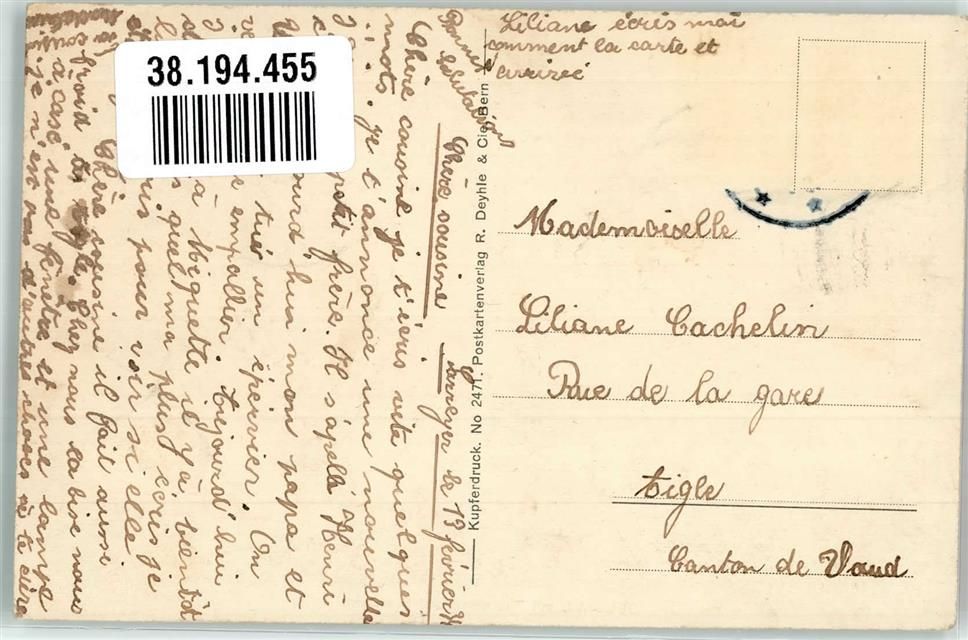 Liliane écris moi
comment la carte et
arrivée
Mademoiselle
Liliane Cachelin
Rue de la gare
Aigle
Canton de Vaud
Kupferdruck. No 2471. Postkartenverlag R. Deyhle & Cie, Bern
38.194.455
le 13 février
Chère cousine
Chère cousine je t'écris vite quelques
mots. je t'annonce une nouvelle
petit frère. Il s'apelle Henri
mon papa et
tué un épervier. On
empailler. Aujourd'hui
à Miguette il y à bientôt
quel ma plus écris je
pour voir si elle
Chère cousine il fait aussi
froid Chez nous la bise nous
à casé une fenêtre et une lampe
je n'est pas d'autres choses à te dire
ta cousine
Bonnes
salutations